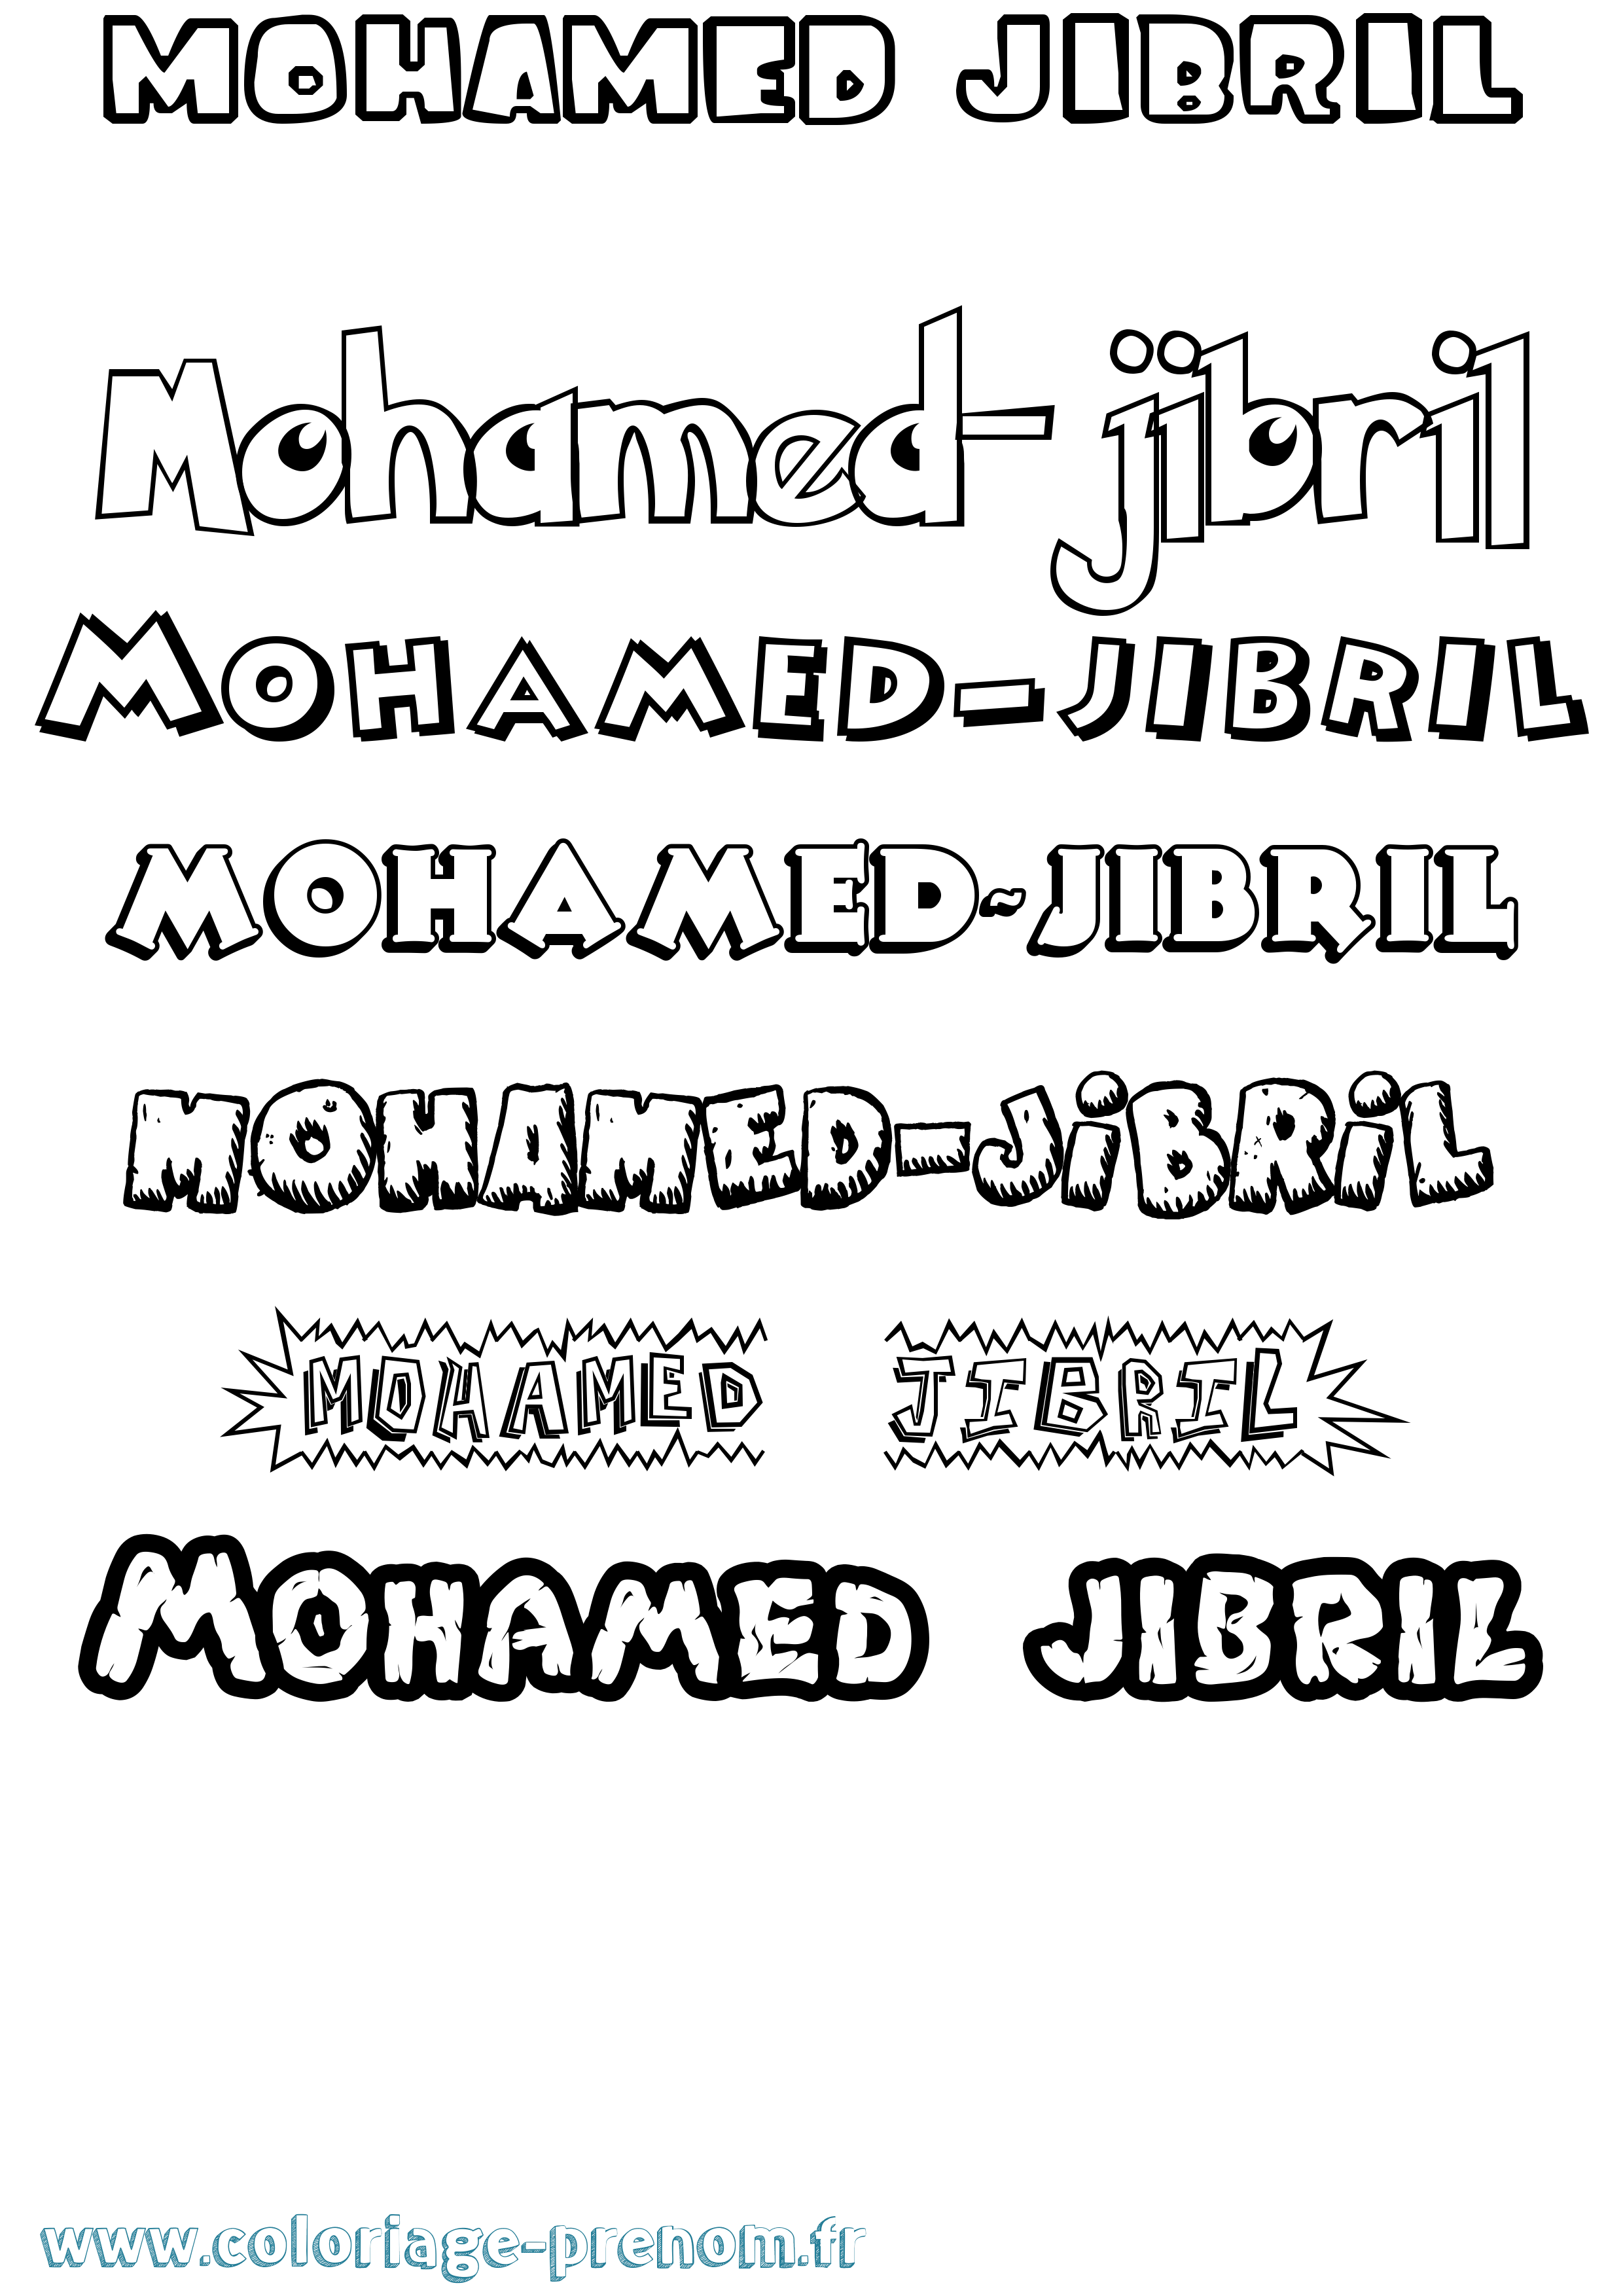 MOHAMED JIBRIL
Mohamed-jibril
MOHAMED-JIBRIL
MOHAMED~JIBRIL
MOHAMED-JiBRiL
MOHAMED JIBRIL
MOHAMED JIBRIL
www.coloriage-prenom.fr